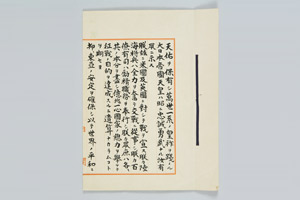 天佑ヲ保有シ萬世一系ノ皇祚ヲ踐メル
大日本帝國天皇ハ昭ニ忠誠勇武ナル汝有
衆ニ示ス
朕茲ニ米國及英國ニ對シテ戰ヲ宣ス朕カ陸
海將兵ハ全力ヲ奮テ交戰ニ從事シ朕カ百
僚有司ハ勵精職務ヲ奉行シ朕カ衆庶ハ各々
其ノ本分ヲ盡シ億兆一心國家ノ總力ヲ擧ケテ
征戰ノ目的ヲ達成スルニ遺算ナカラムコト
ヲ期セヨ
抑々東亞ノ安定ヲ確保シ以テ世界ノ平和ニ